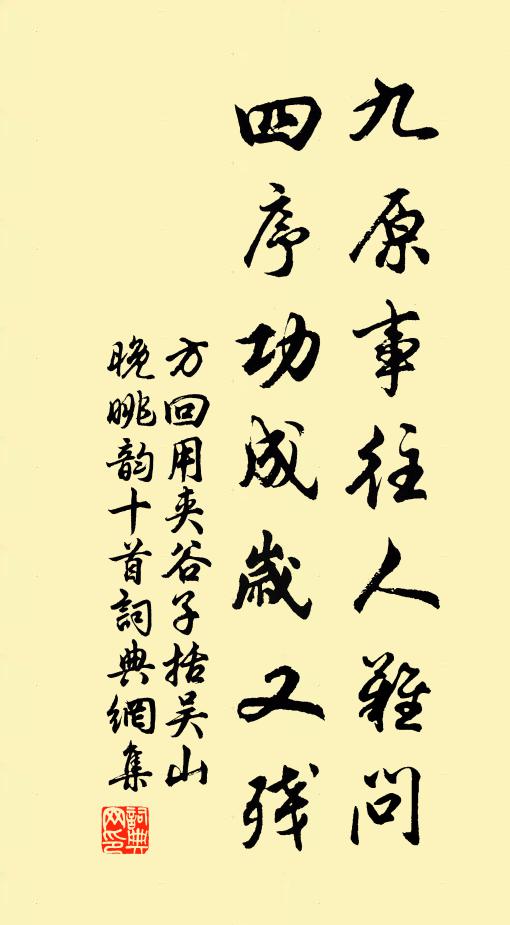 九原事往人难问
四序功成岁又残
方回用夹谷子括吴山
晚眺韵十首詞典網集
詞典网印